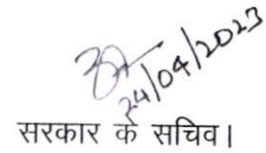 24/04/2023
सरकार के सचिव।